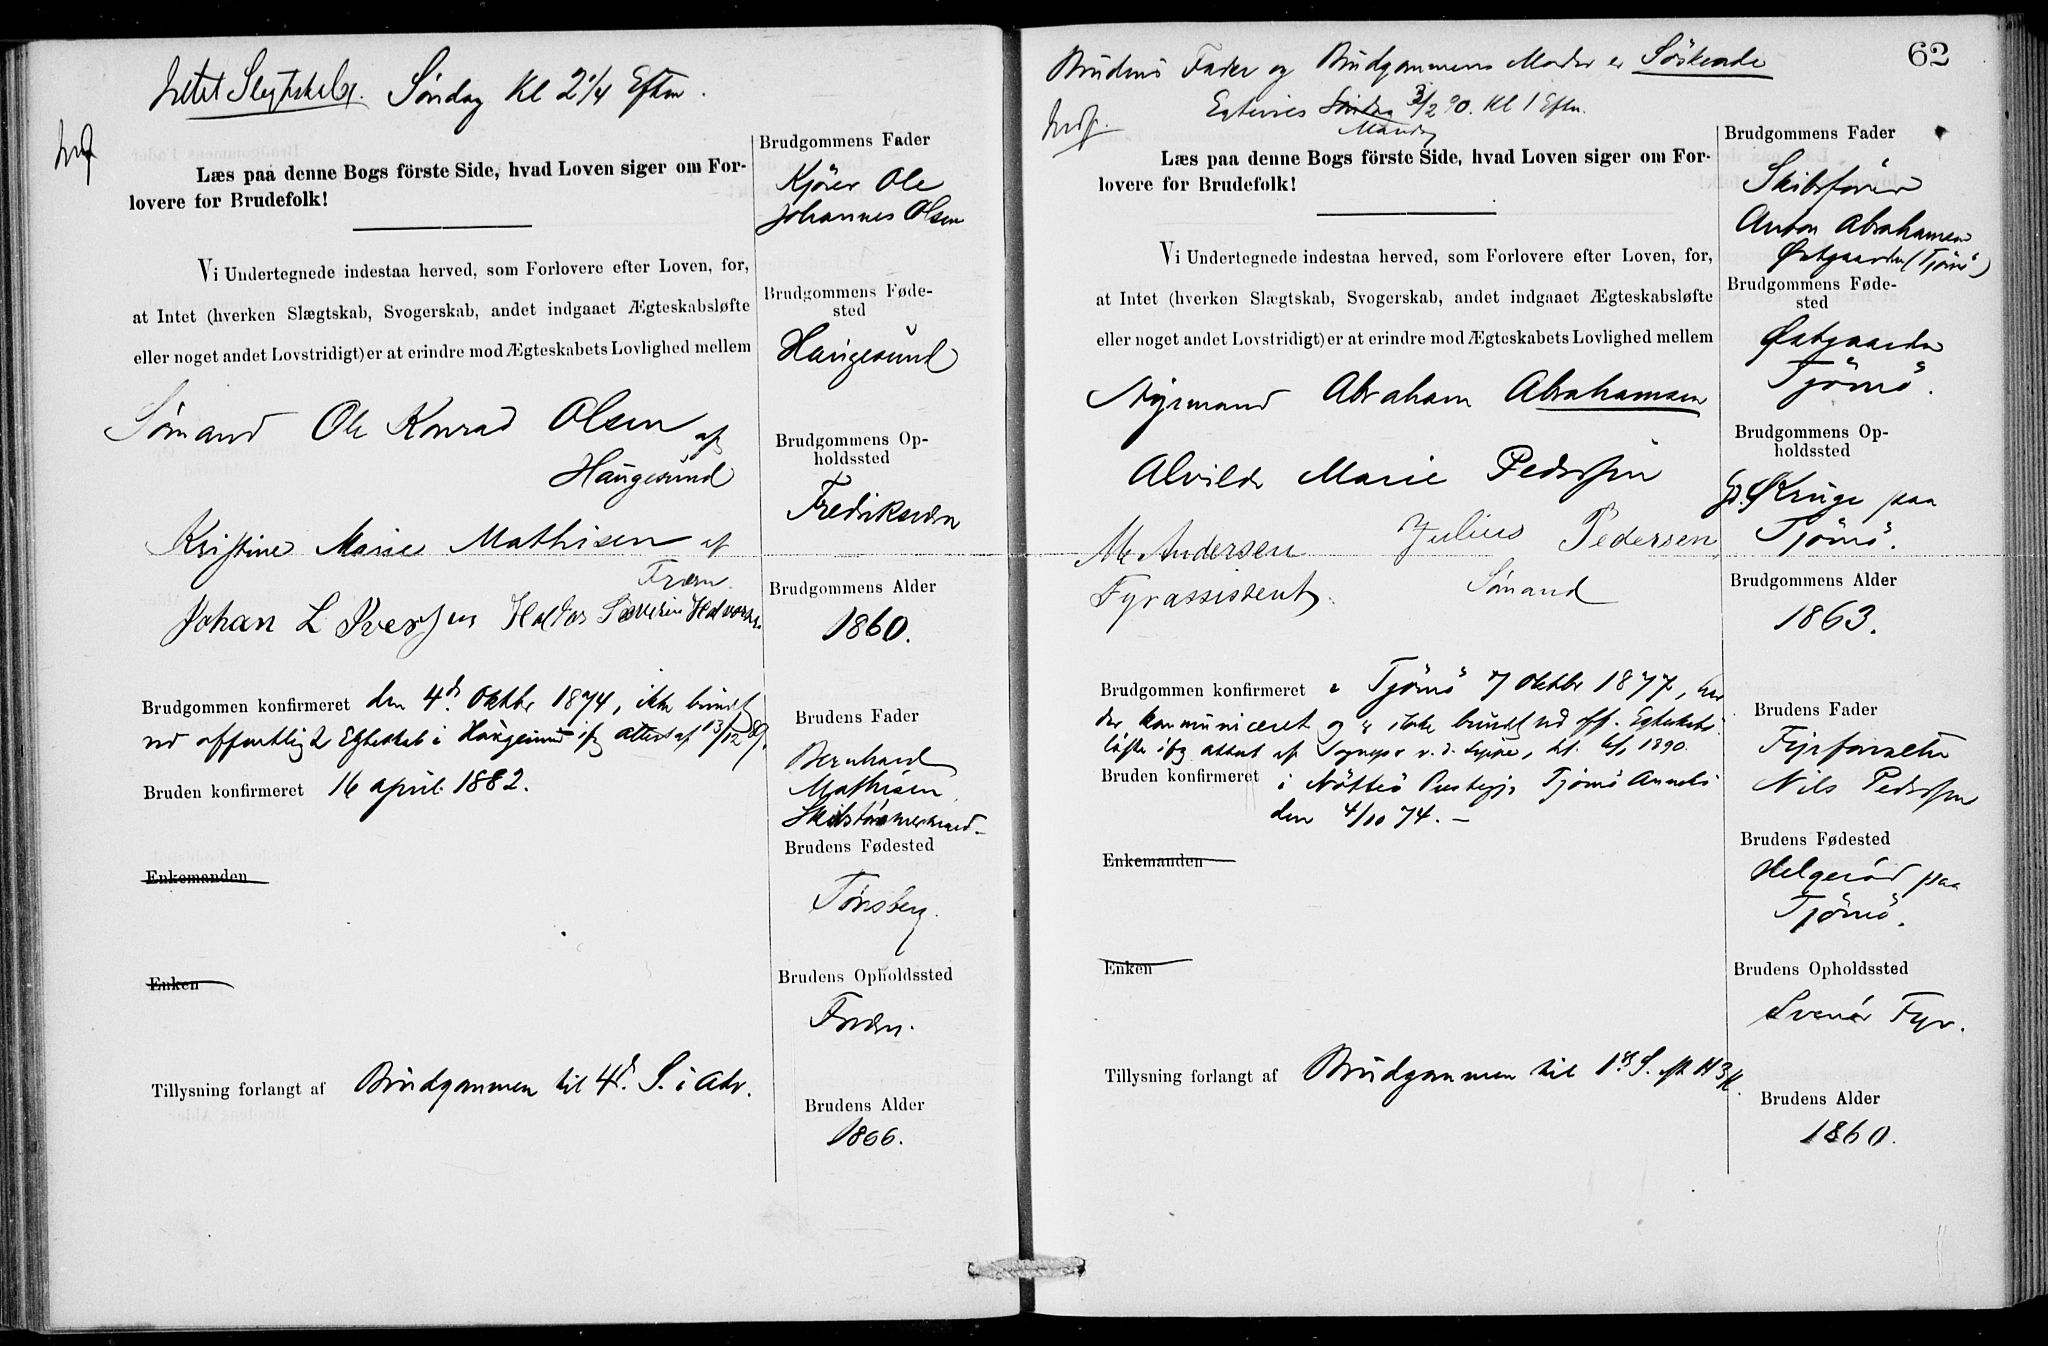 Intet Slegtskab. Søndag Kl 2 1/4 Eftm.
Indf
Læs paa denne Bogs förste Side, hvad Loven siger om For-
lovere for Brudefolk!
Vi Undertegnede indestaa herved, som Forlovere efter Loven, for,
at Intet (hverken Slægtskab, Svogerskab, andet indgaaet Ægteskabsløfte
eller noget andet Lovstridigt) er at erindre mod Ægteskabets Lovlighed mellem
Sømand Ole Konrad Olsen af
Haugesund
Kristine Marie Mathisen af
Fværn
Johan L Iversen Haldor Severin Halvorsen
Brudgommen konfirmeret den 4de Oktbr 1874, ikke bundet
ved offentligt Egteskab i Haugesund ifg attest af 13/12 89.
Bruden konfirmeret 16 april 1882.
Enkemanden
Enken
Tillysning forlangt af Brudgommen til 4d. S. i Adv.
Brudgommens Fader
Kjører Ole
Johannes Olsen
Brudgommens Føde-
sted
Haugesund
Brudgommens Op-
holdssted
Fredriksværn
Brudgommens Alder
1860.
Brudens Fader
Bernhard
Mathisen
Skibstømmermand
Brudens Fødested
Tønsberg.
Brudens Opholdssted
Fværn.
Brudens Alder
1866.
62
Brudens Fader og Brudgommens Moder er Söskende
Egtevies Søndag 3/2 90. Kl 1 Eftm.
Mandag
Indf.
Læs paa denne Bogs förste Side, hvad Loven siger om For-
lovere for Brudefolk!
Vi Undertegnede indestaa herved, som Forlovere efter Loven, for,
at Intet (hverken Slægtskab, Svogerskab, andet indgaaet Ægteskabsløfte
eller noget andet Lovstridigt) er at erindre mod Ægteskabets Lovlighed mellem
Styrmand Abraham Abrahamsen
Alvilde Marie Pedersen
M Andersen Julius Pedersen
Fyrassistent. Sømand
Brudgommen konfirmeret i Tjömö 7 Oktbr 1877, har
der kommuniceret og er ikke bundet ved off. Egteskabs-
löfte ifg attest af Sognepr v. d. Lippe, 1890.
Bruden konfirmeret i Nötterö Prestegj. Tjömö Anneks
den 4/10 74. –
Enkemanden
Enken
Tillysning forlangt af Brudgommen til 1ste S. eft H3K.
Brudgommens Fader
Skibsförer
Anton Abrahamsen
Østgaarden (Tjömö)
Brudgommens Føde-
sted
Østgaarden
Tjömö.
Brudgommens Op-
holdssted
Kruge paa
Tjömö.
Brudgommens Alder
1863.
Brudens Fader
Fyrforvalter
Nils Pedersen
Brudens Fødested
Helgeröd paa
Tjömö.
Brudens Opholdssted
Svenör Fyr.
Brudens Alder
1860.